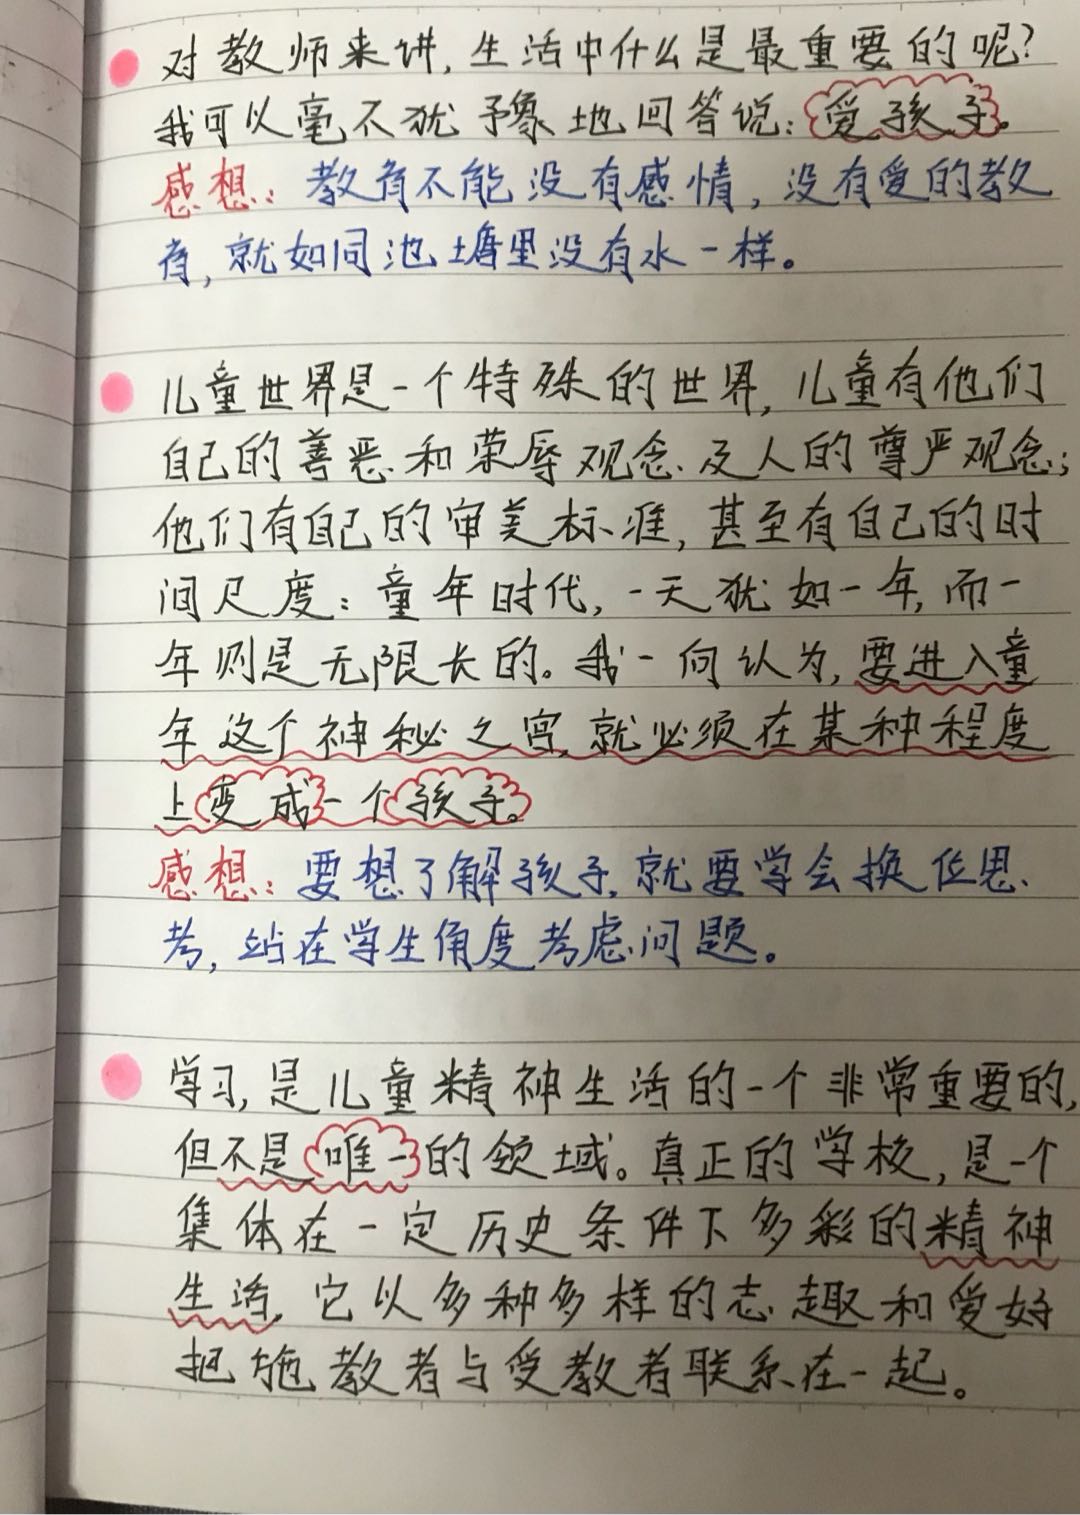 对教师来讲，生活中什么是最重要的呢？
我可以毫不犹豫地回答说：爱孩子。
感想：教育不能没有感情，没有爱的教
育，就如同池塘里没有水一样。
儿童世界是一个特殊的世界，儿童有他们
自己的善恶和荣辱观念及人的尊严观念；
他们有自己的审美标准，甚至有自己的时
间尺度：童年时代，一天犹如一年，而一
年则是无限长的。我一向认为，要进入童
年这个神秘之宫，就必须在某种程度
上变成一个孩子。
感想：要想了解孩子，就要学会换位思
考，站在学生角度考虑问题。
学习，是儿童精神生活的一个非常重要的，
但不是唯一的领域。真正的学校，是一个
集体在一定历史条件下多彩的精神
生活，它以多种多样的志趣和爱好
把施教者与受教者联系在一起。